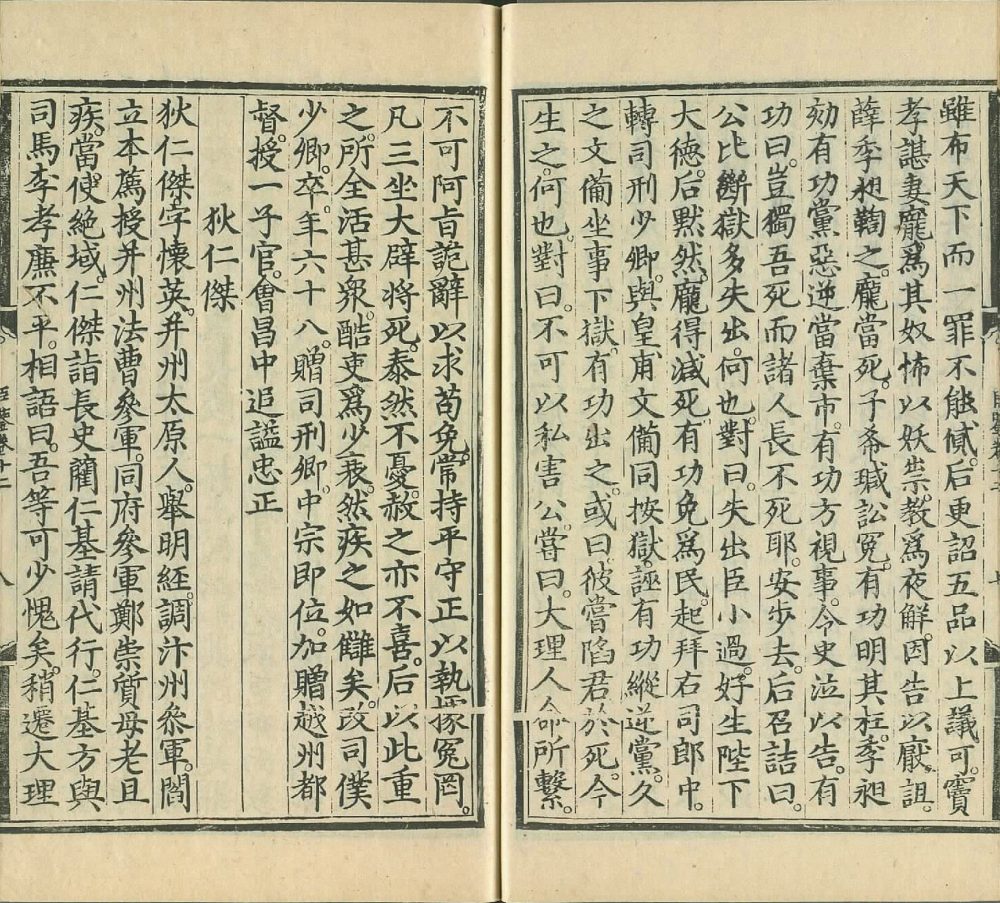 雖布天下而一罪不能貸后更詔五品以上議可。竇
孝諶妻龐爲其奴怖以妖祟。教爲夜解。因告以厭詛。
薛季昶鞫之。龐當死。子希瑊訟冤。有功明其枉。季昶
劾有功黨惡逆當棄市。有功方視事。令史泣以告。有
功曰。豈獨吾死而諸人長不死耶。安步去。后召詰曰。
公比斷獄多失出。何也。對曰。失出臣小過。好生陛下
大德。后默然。龐得減死。有功免爲民。起拜右司郎中。
轉司刑少卿。與皇甫文備同按獄。誣有功縱逆黨。久
之文備坐事下獄。有功出之。或曰。彼嘗陷君於死。今
生之。何也。對曰。不可以私害公。嘗曰。大理人命所繫。
不可阿旨詭辭以求苟免。常持平守正以執據冤罔。
凡三坐大辟將死。泰然不憂。赦之亦不喜。后以此重
之。所全活甚衆。酷吏爲少衰。然疾之如讎矣。改司僕
少卿。卒。年六十八。贈司刑卿。中宗即位。加贈越州都
督。授一子官。會昌中追謚忠正
狄仁傑
狄仁傑字懷英。并州太原人。舉明經。調汴州參軍。閻
立本薦授并州法曹參軍。同府參軍鄭崇質母老且
疾。當使絶域。仁傑詣長史藺仁基請代行。仁基方與
司馬李孝廉不平。相語曰。吾等可少愧矣。稍遷大理